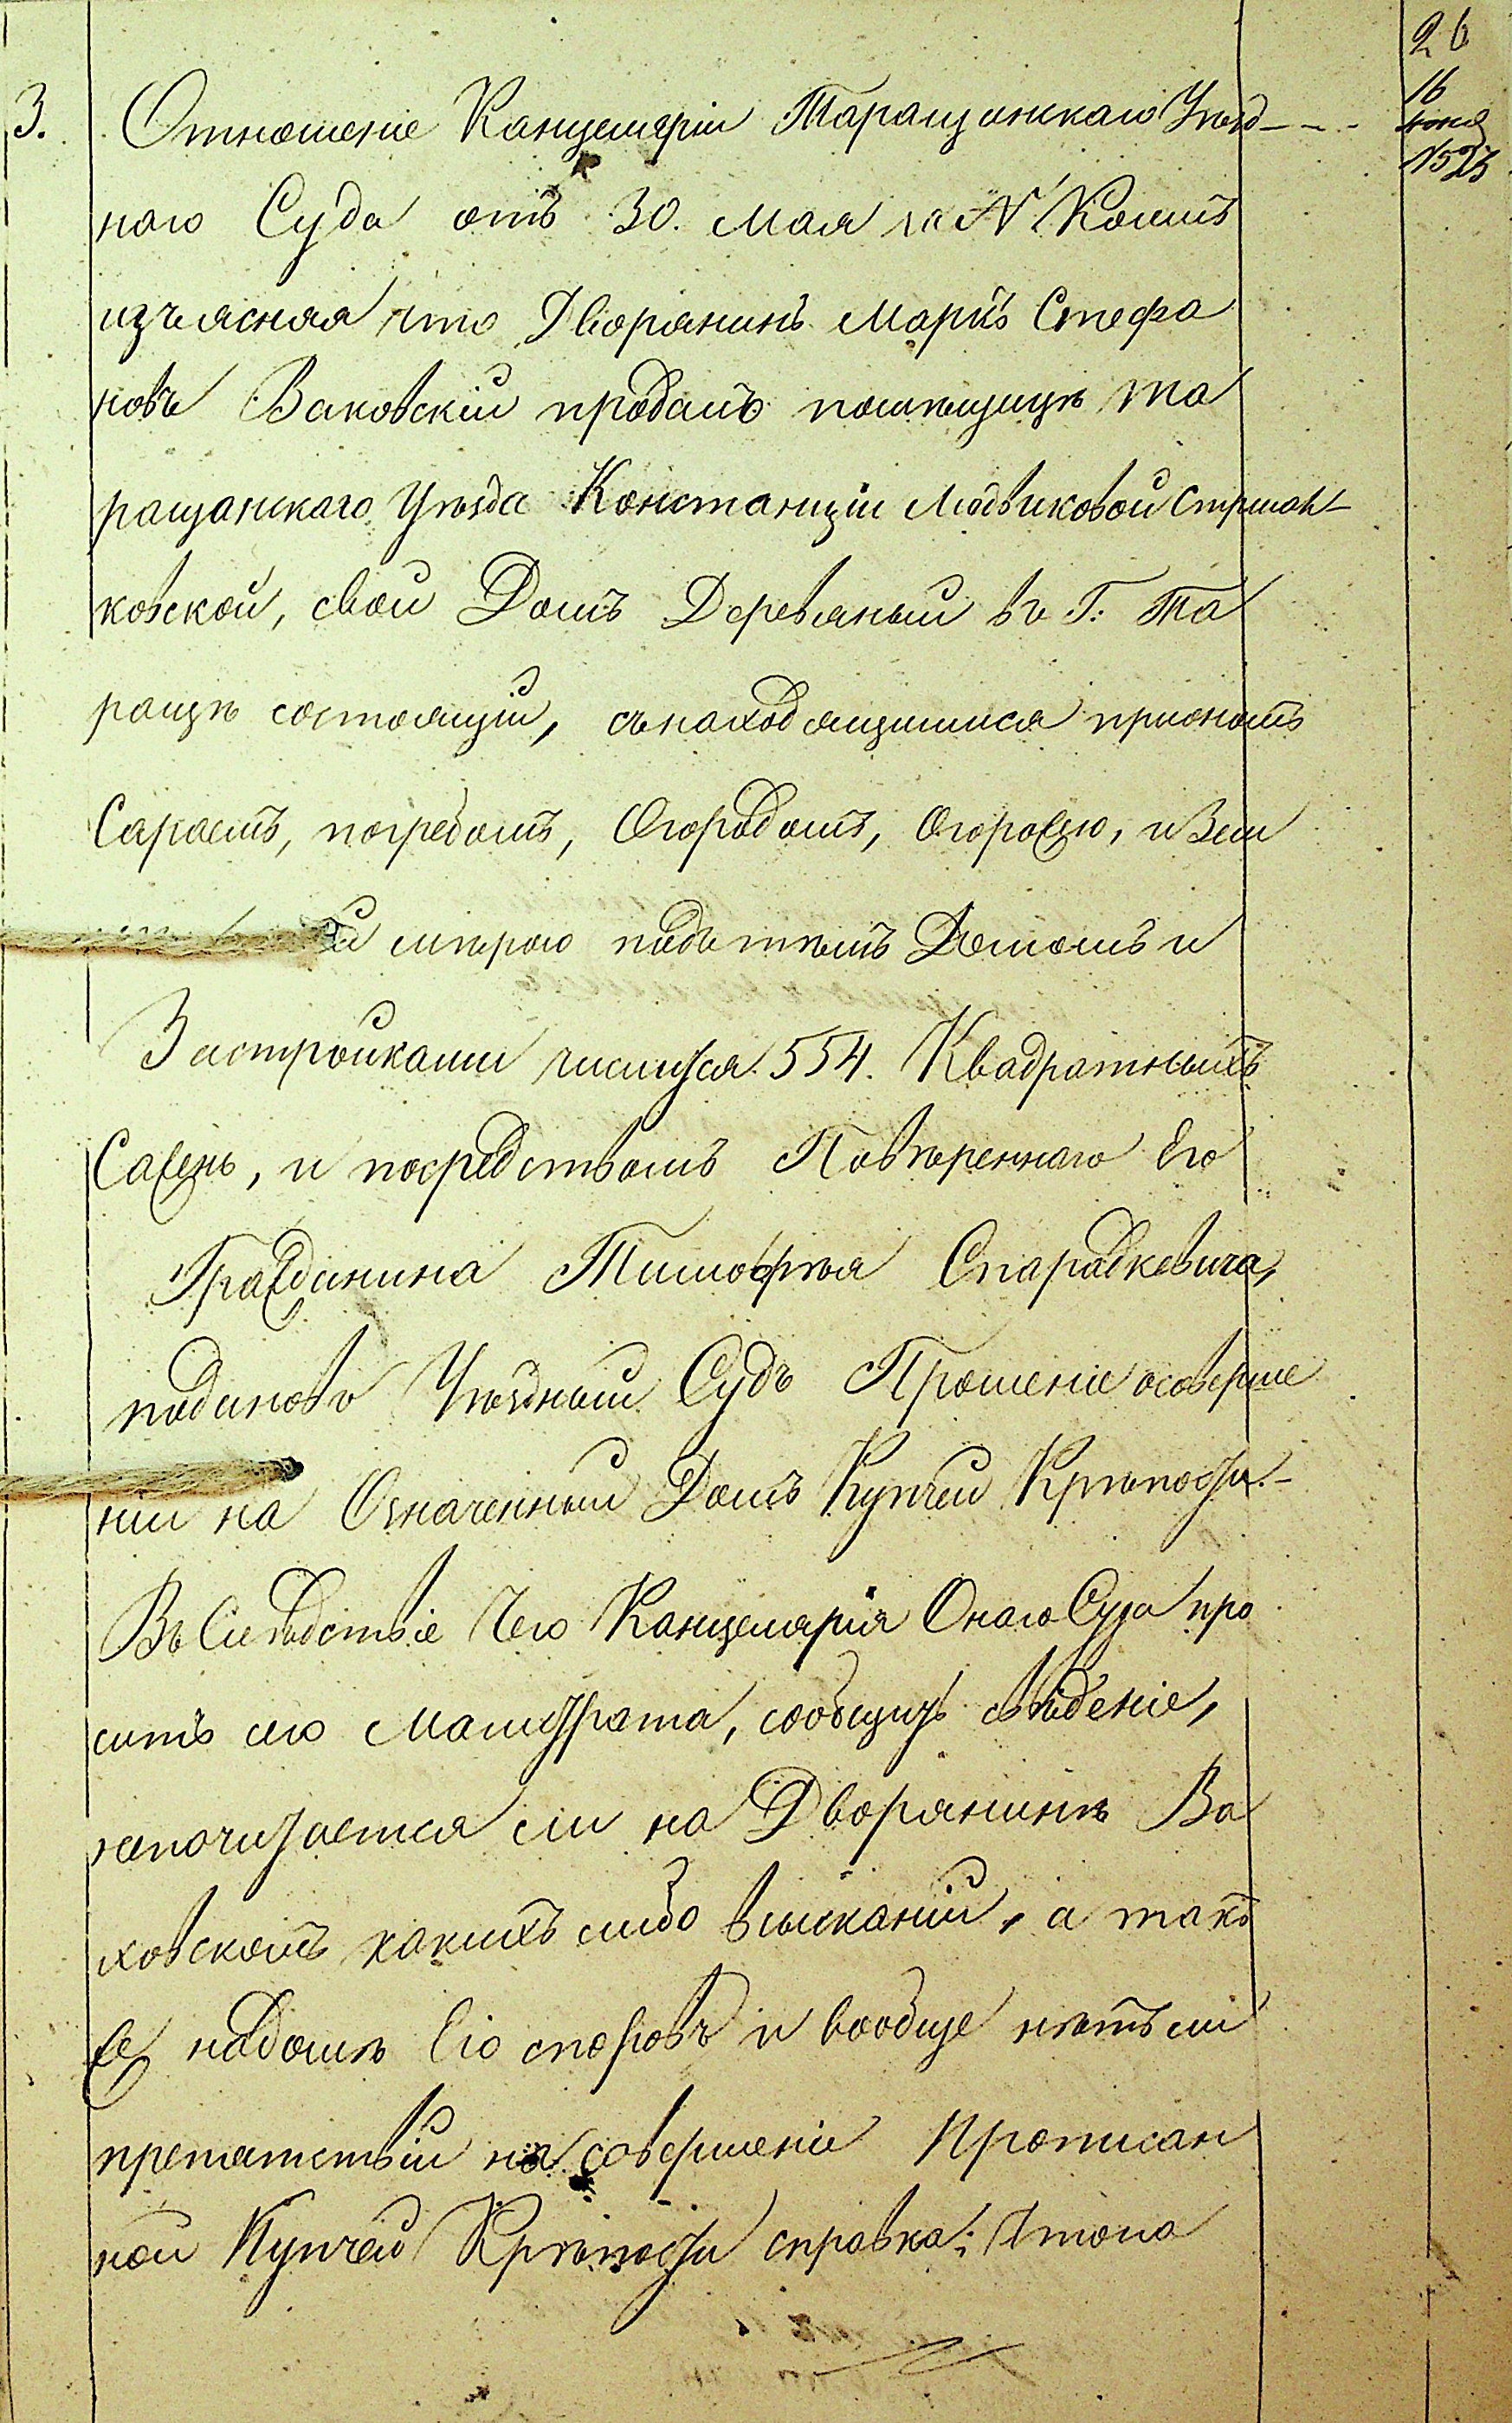 26
16
Іюня
№523
3. Отношеніе Канцеляріи Таращанскаго Уезд-
наго Суда отъ 30. Мая за N Коимъ
изъясняя что Дворянинъ Маркъ Стефа
новъ Ваковскій продалъ помѣщицѣ Та
ращанскаго Уѣзда Констанціи Людвиковой
ковской, свой Домъ Деревяный въ Г: Та
ращѣ состоящій, съ находящимися при ономъ
Сараемъ, погребомъ, Огородомъ, Огорожею, и Зем
мѣрою подъ тѣмъ Домомъ и
Застройками числится 554. Квадратныхъ
Сажень, и посредствомъ Повѣреннаго Его
Гражданина Тимофѣя Спарадкевича,
подалъ въ Уѣздный Судъ Прошеніе о соверше
ніи на Означенный Домъ Купчей Крѣпости.-
Въ Слѣдствіе Чего Канцелярія Онаго Суда про
ситъ сего Магистрата, сообщить свѣденіе,
непочитается ли на Дворянинѣ Ва
ковскомъ какихъ либо взысканій, а такъ
же на домѣ Его споровъ и вообще нѣтъ ли
препятствій на совершеніе Прописан
ной Купчей Крѣпости справка: Что на